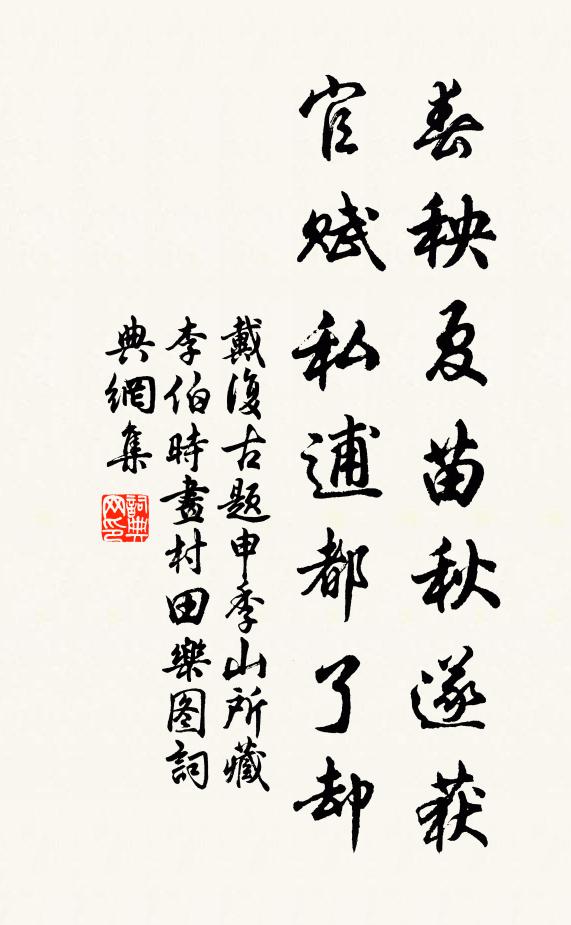 春秧夏苗秋遂获
官赋私逋都了却
戴復古题申季山所藏
李伯時畫村田樂图詞
典網集
詞典網印